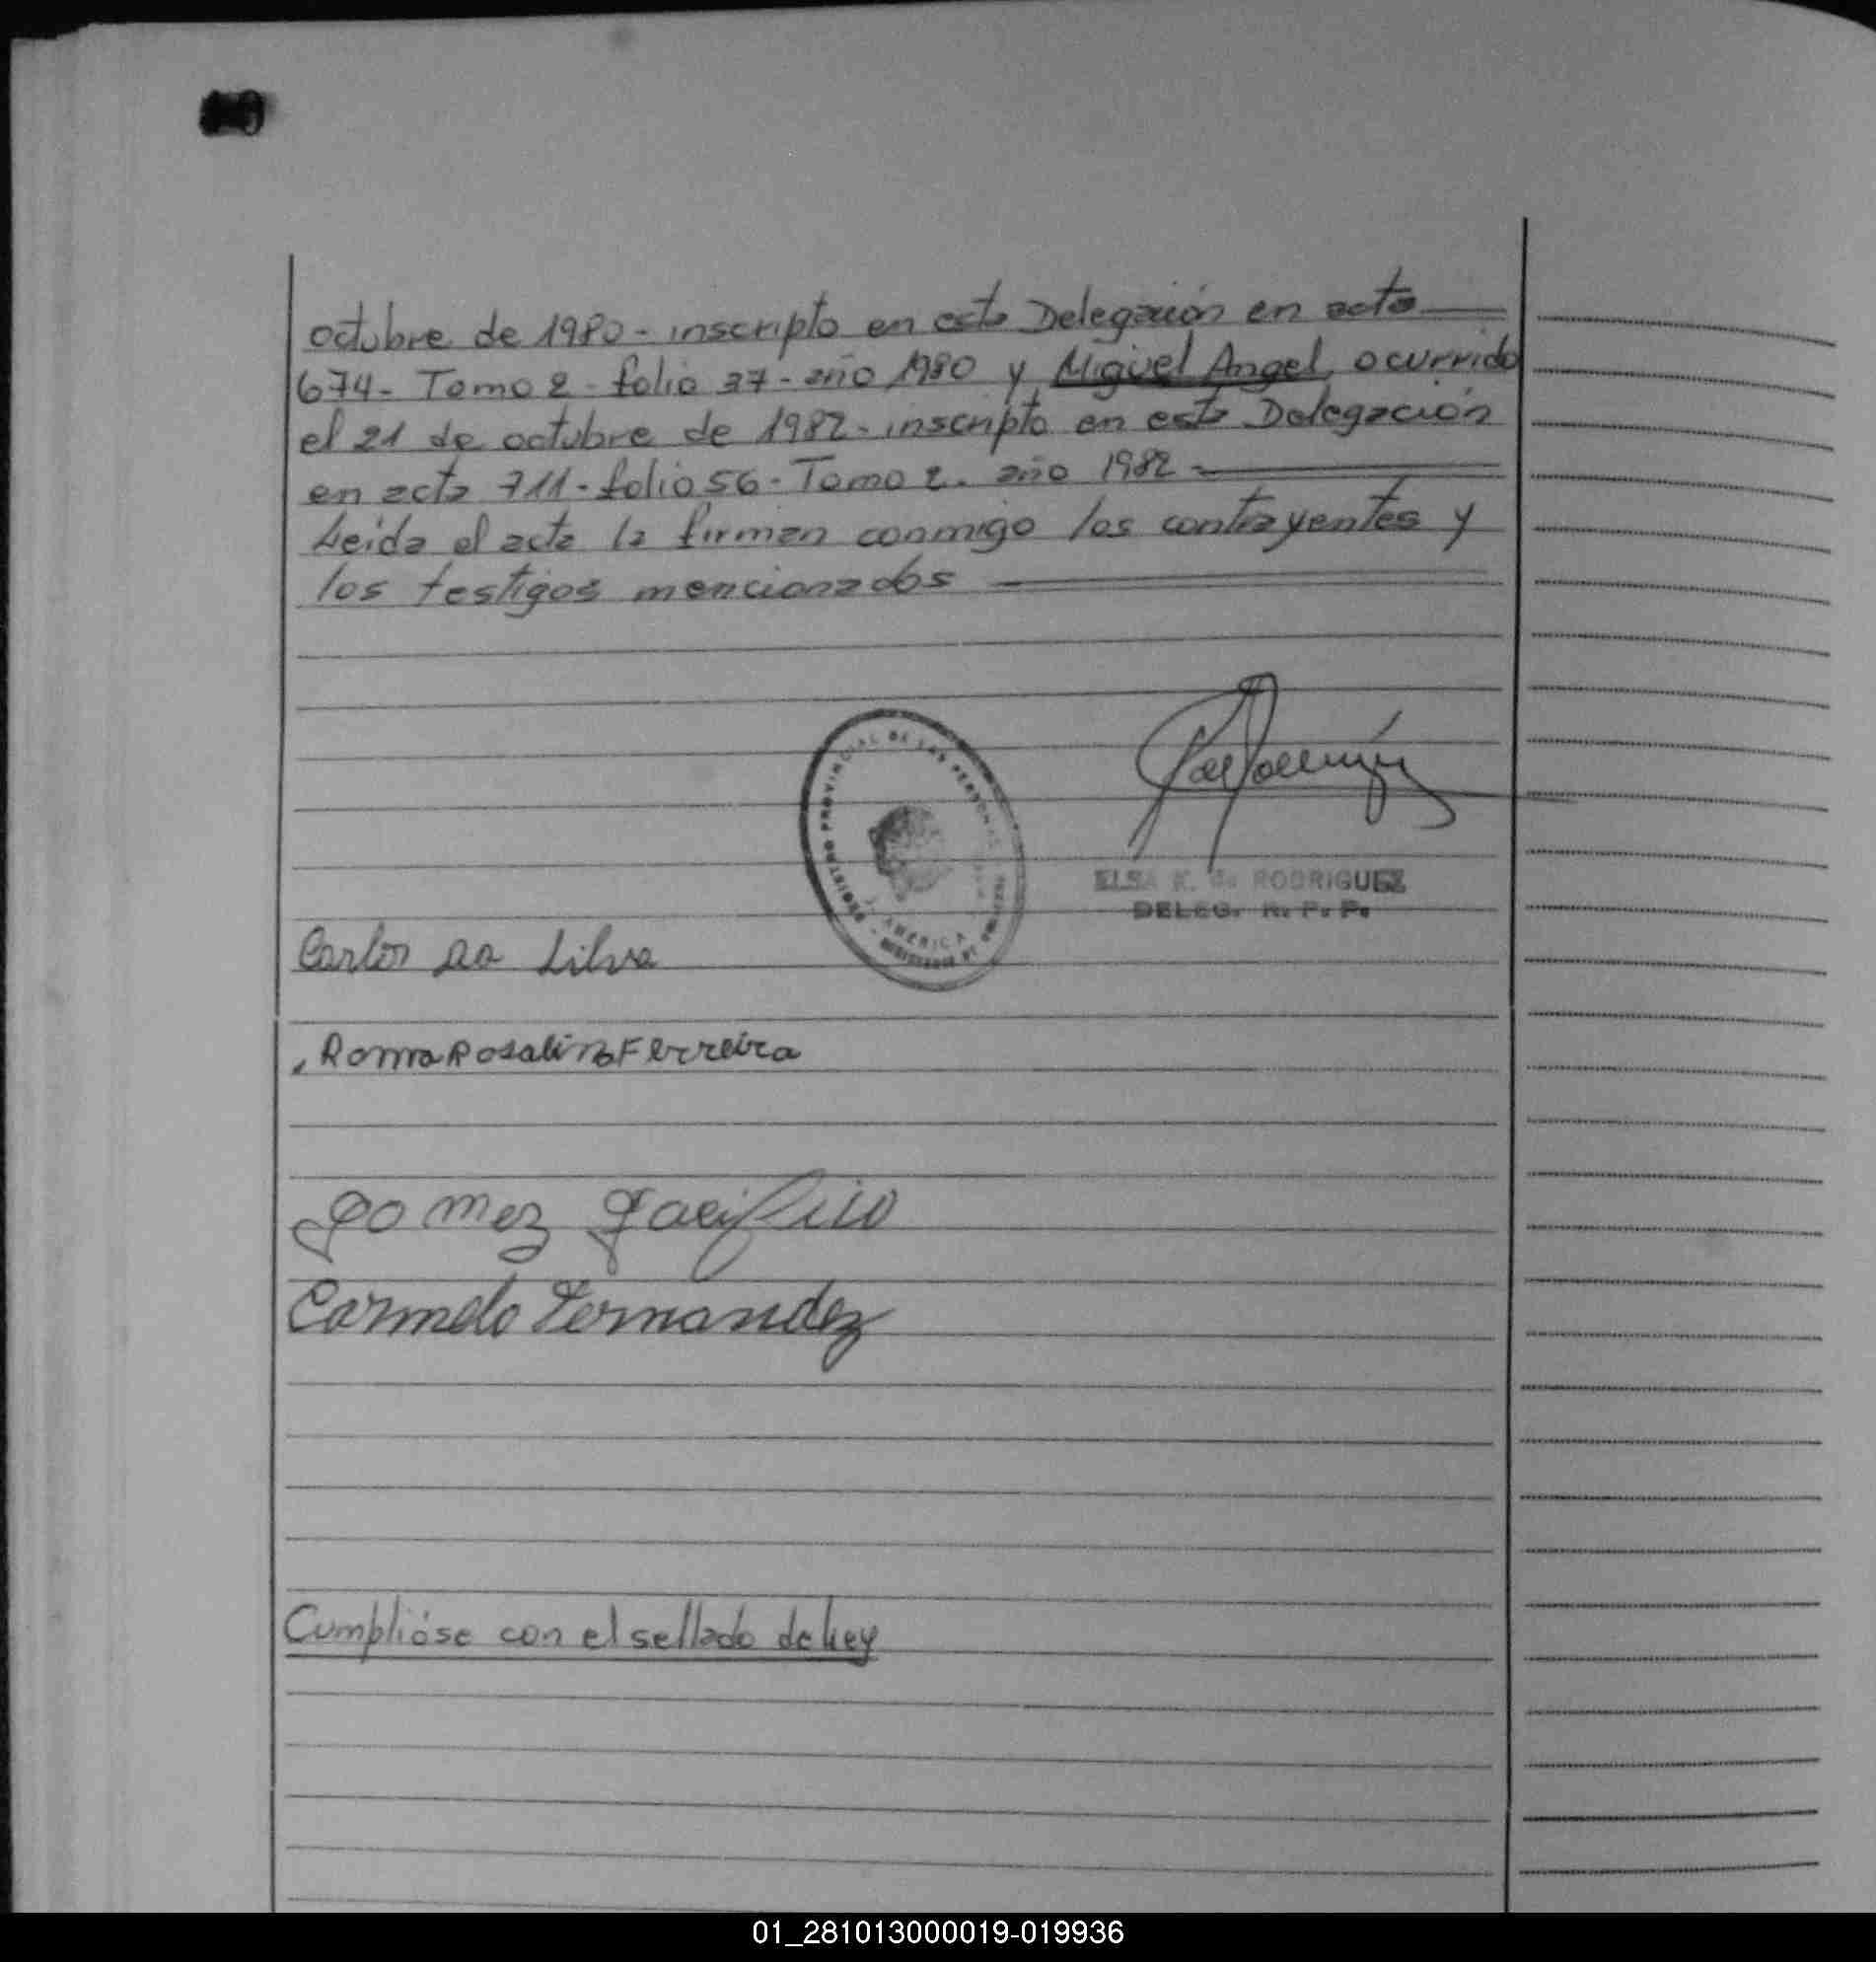 octubre de 1980 - inscripto en esta Delegación en acta
674 - Tomo 2 - folio 37 - año 1980 y Miguel Angel, ocurrido
el 21 de octubre de 1982 - inscripto en esta Delegación
en acta 711 - folio 56 - Tomo 2. año 1982 -
Leida el acta la firman conmigo los contrayentes y
los testigos mencionados
REGISTRO PROVINCIAL DE LAS PERSONAS
AMERICA
ELSA R. G. RODRIGUEZ
DELEG. R. P. P.
Carlos da Silva
Roma Rosalina Ferreira
Gomez Pacifico
Carmelo Fernandez
Cumplióse con el sellado de Ley
01_281013000019-019936